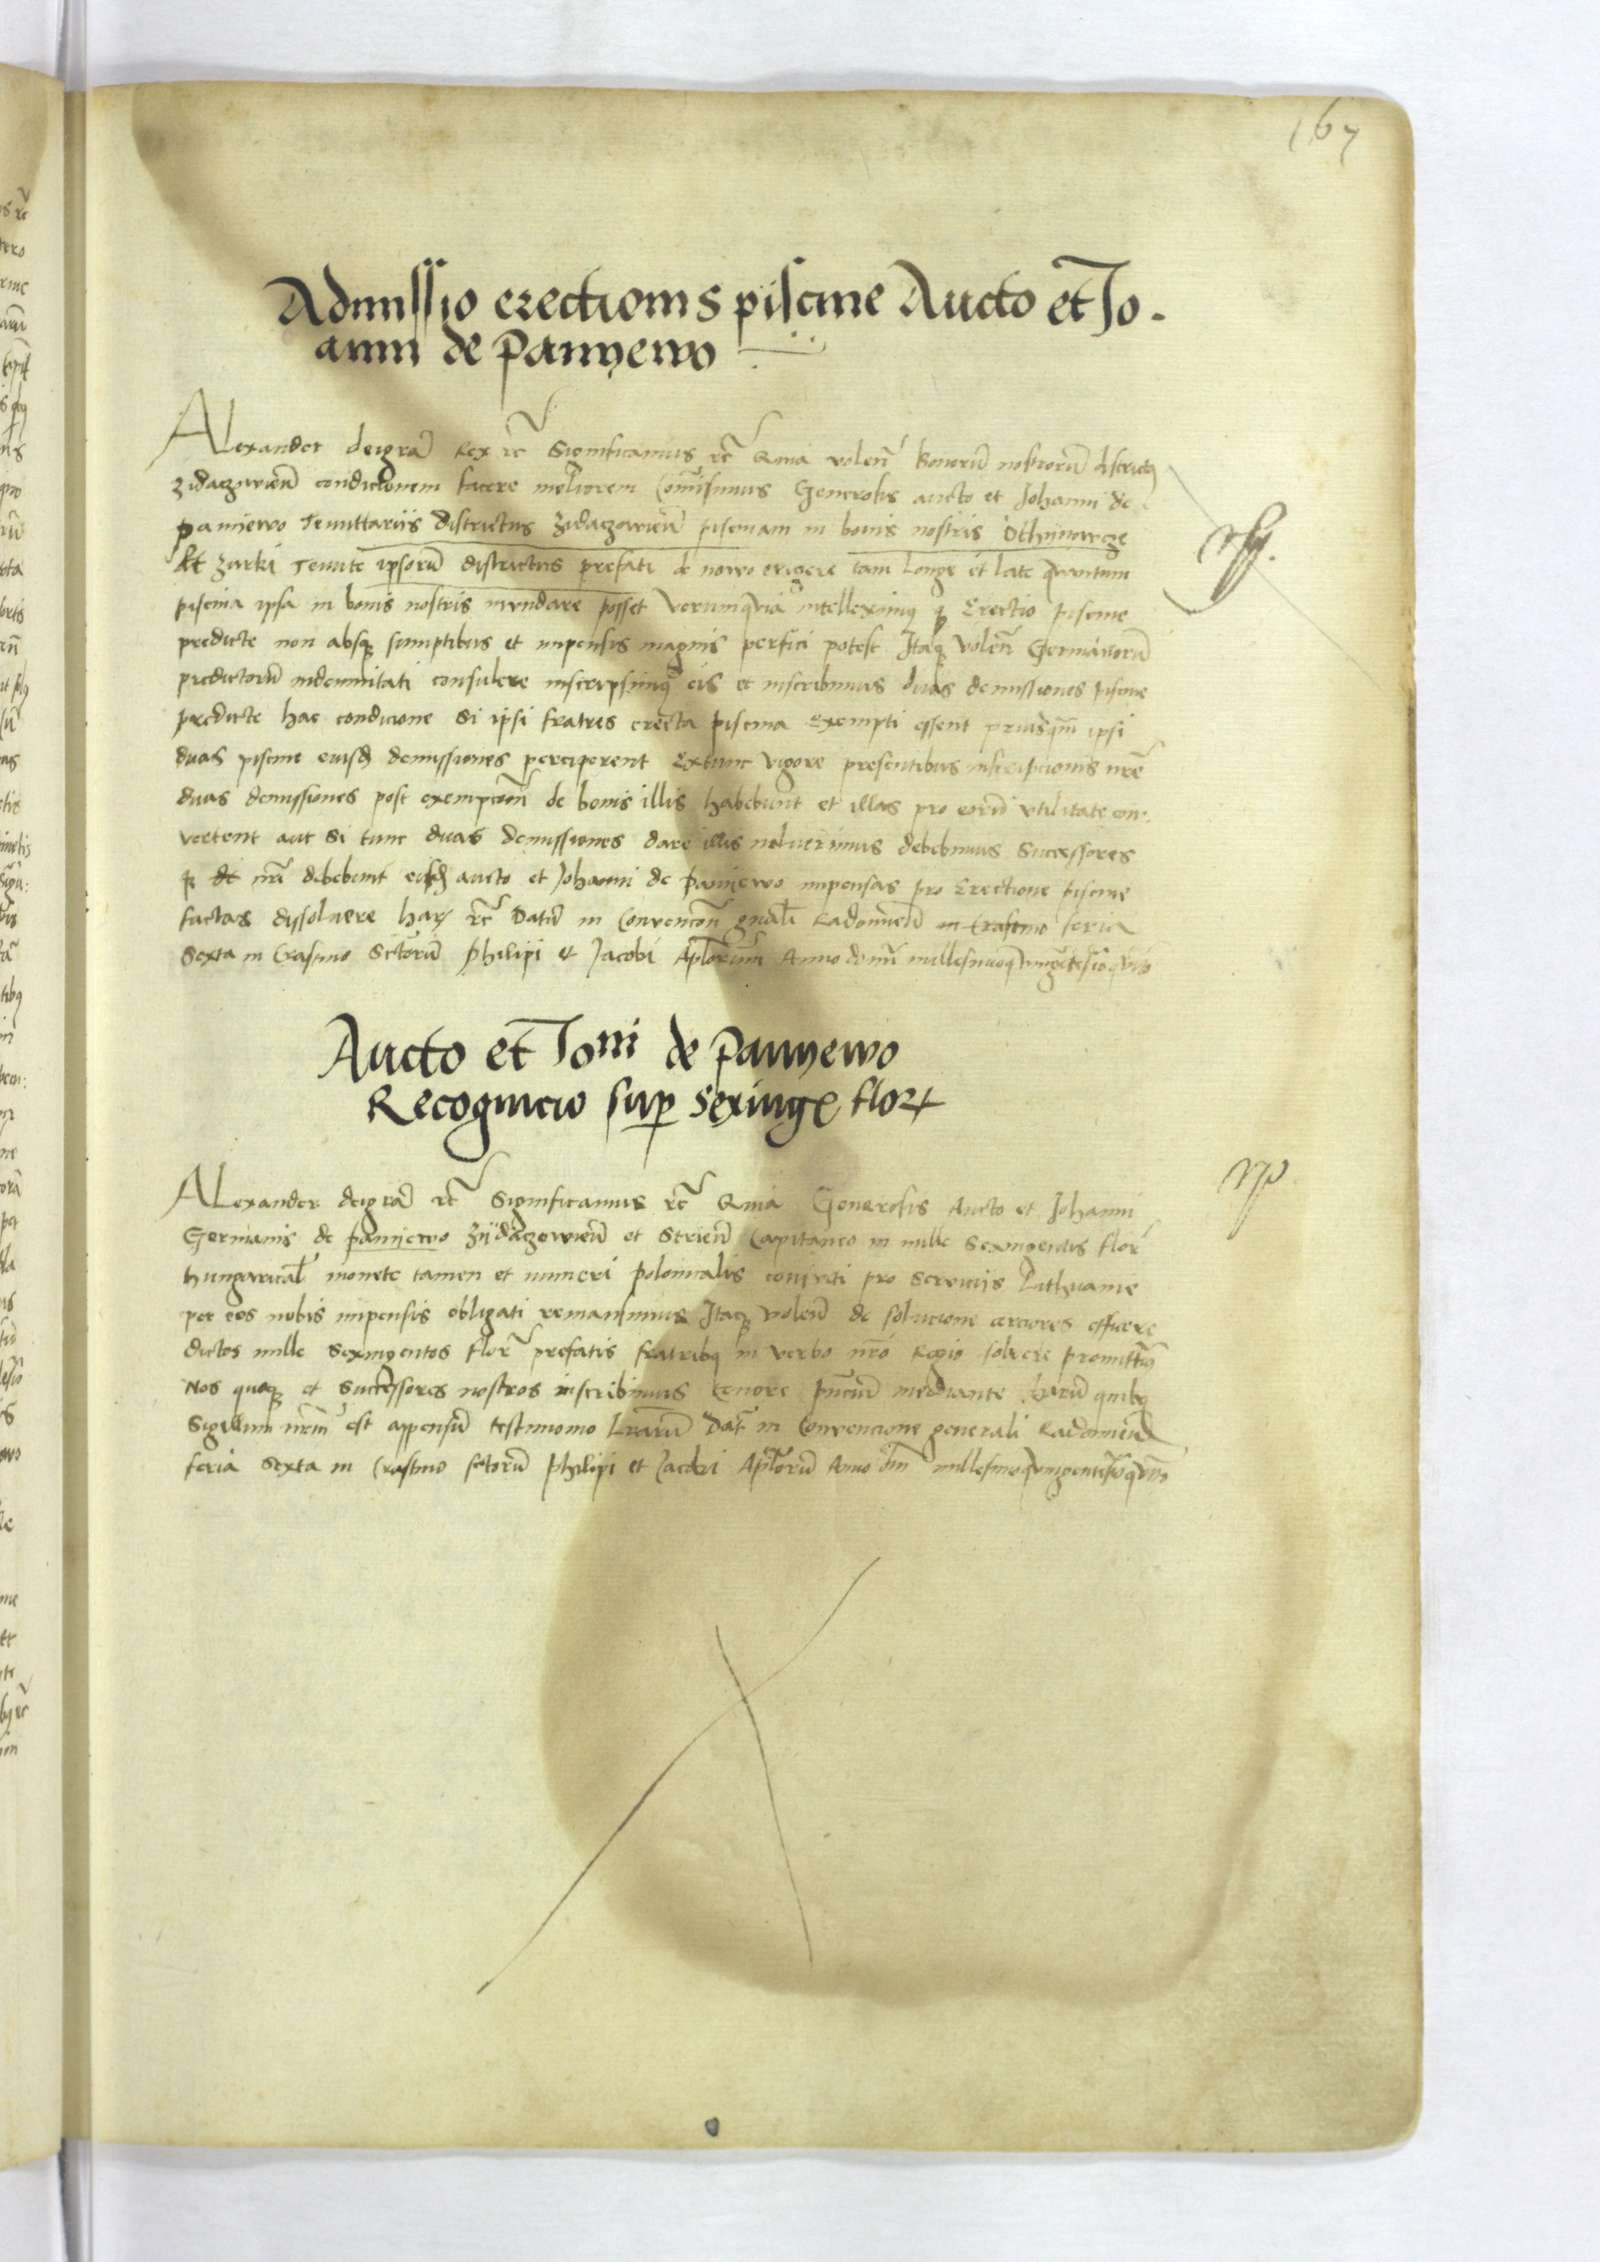 167
Admissio erectionis piscine Aucto et Jo-
anni de Pannyewo
Alexander dei gra͞ Rex rc̃ Significamus rc̃ Quia volen̄ Bonorū nostrorū districtus
zidaczowien̄ condictionem facere meliorem Com̄isimus Generosis aucto et Johanni de
panijewo Tenuttariis districtus Zidaczowien̄ piscinam in bonis nostris Othijnowcze
Et zurki Tenute ipsorū districtus prefati de nowo erigere tam Longe et late qvantum
piscina ipsa in bonis nostris inundare posset Verum qvia intelleximus Erectio piscine
predicte non absq sumptibus et impensis magnis perfici potest Itaq volen̄ Germanorū
predictorū indemnitati consulere inscripsimus eis et inscribimus duas demissiones piscine
predicte hac condicione Si ipsi fratres erecta piscina Exempti essent priusq̄m ipsi
duas piscine eiusd demissiones perciperent Extunc vigore presentibus inscripcionis nr̄e
duas demissiones post exempcōm de bonis illis habebunt et illas pro eorū vtilitate con-
vertent aut Si tunc duas demissiones dare illis noluerimus debebimus Successores
q nr̄i debebunt eisd aucto et Johanni de panijewo impensas pro Erectione piscine
factas dissoluere har rc̃ Datū in Convencōn gnāli Radomien̄ in Crastino feria
Sexta in Crastino Sctorū Philipi et Jacobi Aplorum Anno domi millesimoqvingētesīoqvīto
Aucto et Joni de Pannyewo
Recognicio sup sexinge flor
Alexander dei gra͞ rc̃ Significamus rc̃ Quia Generosis Aucto et Johanni
Germanis de panijewo Zijdaczowien̄ et Strien̄ Capitaneo in mille Sexingentis flor
hungarical̄ monete tamen et numeri polonicalis coniuncti pro Servicijs Lithuanie
per eos nobis impensis obligati remansimus Itaq volen̄ de solucione cerciores efficere
dictos mille Sexingentos flor prefatis fratribq in verbo nr̄o Regio solvere promittīs
Nos quoq et Successores nostros inscribimus tenore pn̄ciū mediante harū quibq
Sigillum nr̄m est appensū testimonio Lrārū Dat̄ in Convencione generali Radomien̄
feria Sexta in Crastino sctorū philipi et Jacobi Aplorū Anno dn̄i millesimoqvingentesīoqvīto